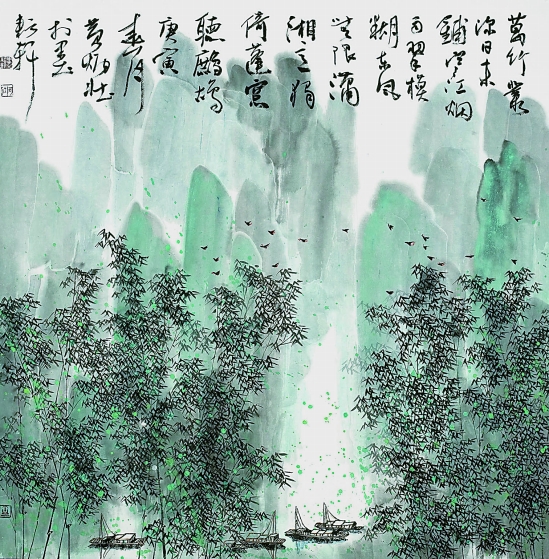 萬竹叢
深日未
鋪空江烟
雨翠模
糊東風
無限瀟
湘意獨
倚蓬窗
聽鷓鴣
庚寅
春月
黃
於墨
軒